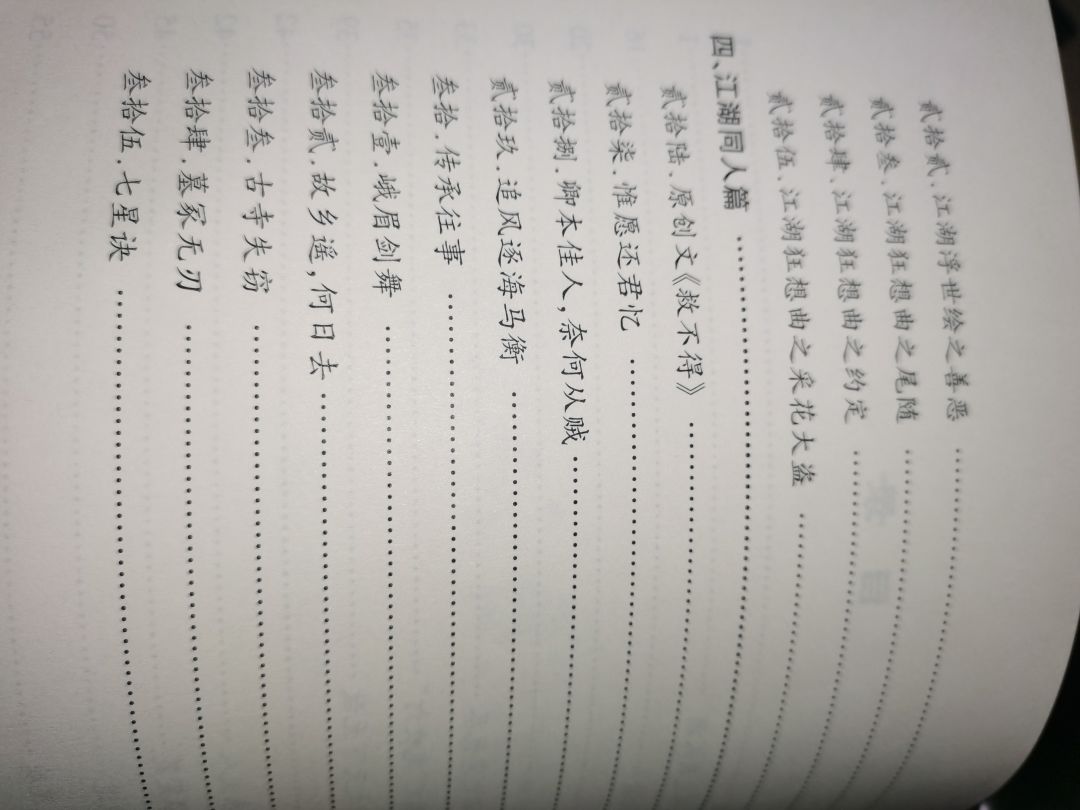 贰拾贰、江湖浮世绘之善恶
贰拾叁、江湖狂想曲之尾随
贰拾肆、江湖狂想曲之约定
贰拾伍、江湖狂想曲之采花大盗
四、江湖同人篇
贰拾陆、原创文《救不得》
贰拾柒、惟愿还君忆
贰拾捌.卿本佳人,奈何从贼
贰拾玖.追风逐海马衡
叁拾.传承往事
叁拾壹.峨眉剑舞
叁拾贰.故乡遥,何日去
叁拾叁.古寺失窃
叁拾肆.墓冢无刃
叁拾伍.七星诀